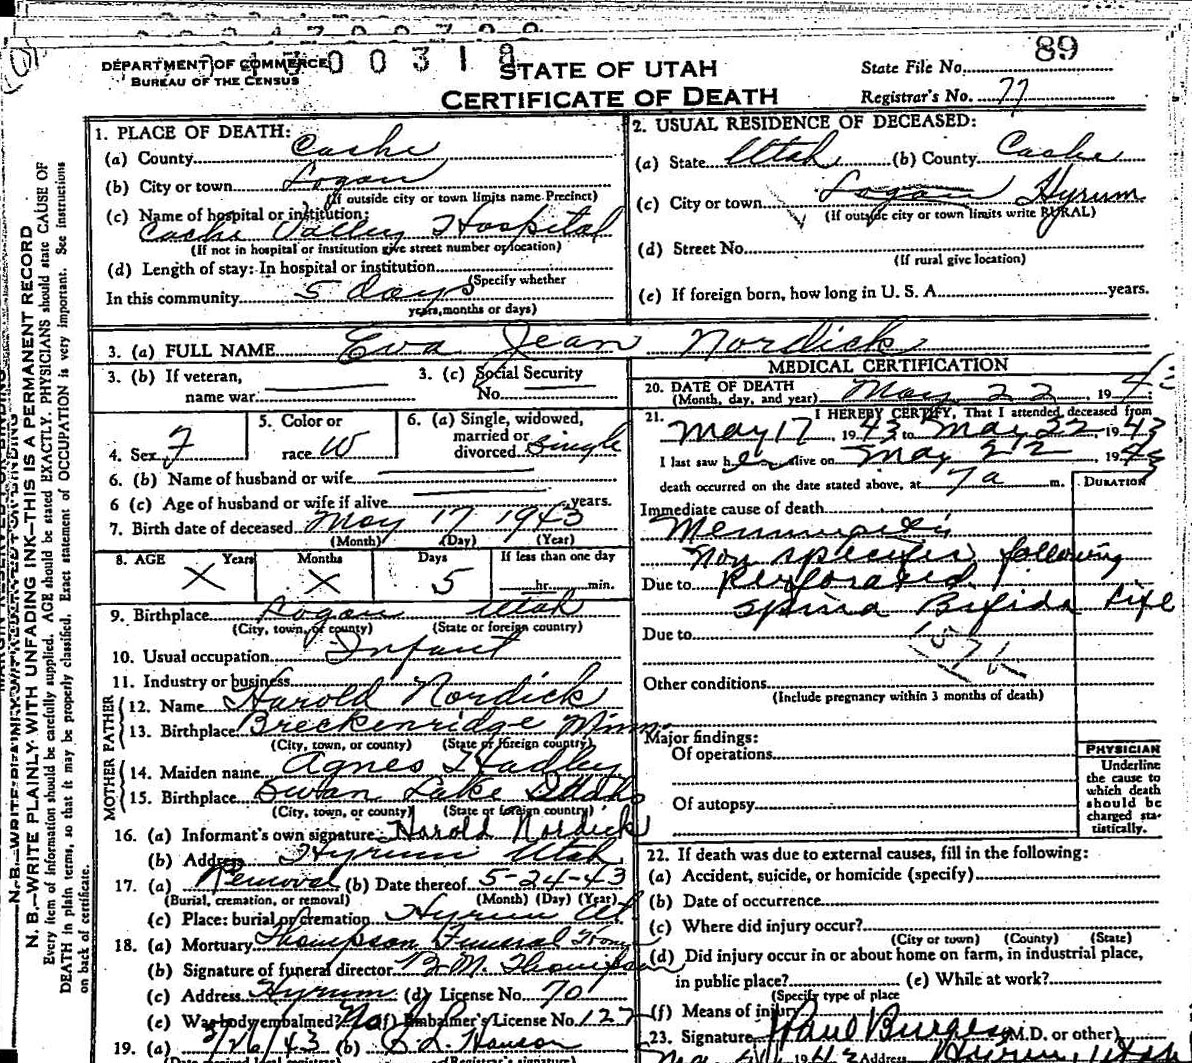 89
0 0 3 1 8
DEPARTMENT OF COMMERCE
BUREAU OF THE CENSUS
STATE OF UTAH
CERTIFICATE OF DEATH
State File No.
Registrar's No. 77
N. B.—WRITE PLAINLY WITH UNFADING INK—THIS IS A PERMANENT RECORD
Every item of information should be carefully supplied. AGE should be stated EXACTLY. PHYSICIANS should state CAUSE OF
DEATH in plain terms, so that it may be properly classified. Exact statement of OCCUPATION is very important. See instructions
on back of certificate.
1. PLACE OF DEATH:
(a) County Cache
(b) City or town Logan
(If outside city or town limits name Precinct)
(c) Name of hospital or institution:
Cache Valley Hospital
(If not in hospital or institution give street number or location)
(d) Length of stay: In hospital or institution
(Specify whether
In this community 5 days
years, months or days)
2. USUAL RESIDENCE OF DECEASED:
(a) State Utah (b) County Cache
(c) City or town Logan Hyrum
(If outside city or town limits write RURAL)
(d) Street No.
(If rural give location)
(e) If foreign born, how long in U. S. A. years.
3. (a) FULL NAME Eva Jean Nordick
3. (b) If veteran,
name war
3. (c) Social Security
No.
4. Sex F
5. Color or
race W
6. (a) Single, widowed,
married or
divorced single
6. (b) Name of husband or wife
6 (c) Age of husband or wife if alive years.
7. Birth date of deceased May 17 1943
(Month) (Day) (Year)
8. AGE Years Months Days If less than one day
X X 5 hr. min.
9. Birthplace Logan Utah
(City, town, or county) (State or foreign country)
10. Usual occupation Infant
11. Industry or business
FATHER
12. Name Harold Nordick
13. Birthplace Breckenridge Minn.
(City, town, or county) (State of foreign country)
MOTHER
14. Maiden name Agnes Hadley
15. Birthplace Swan Lake Idaho
(City, town, or county) (State or foreign country)
16. (a) Informant's own signature Harold Nordick
(b) Address Hyrum Utah
17. (a) Removal (b) Date thereof 5-24-43
(Burial, cremation, or removal) (Month) (Day) (Year)
(c) Place: burial or cremation Hyrum Ut
18. (a) Mortuary Thompson Funeral Home
(b) Signature of funeral director B. M. Thompson
(c) Address Hyrum (d) License No. 70
(e) Was body embalmed? No (f) Embalmer's License No. 127
19. (a) 5/26/43 (b) Hanson
Registrar's signature)
MEDICAL CERTIFICATION
20. DATE OF DEATH
(Month, day, and year) May 22, 194
21. I HEREBY CERTIFY, That I attended deceased from
May 17, 1943 to May 22, 1943
I last saw her alive on May 22 194
death occurred on the date stated above, at 7a m.
DURATION
Immediate cause of death
Meningitis
Non specific following
Due to perforated
Spina Bifida Life
Due to
157
Other conditions
(Include pregnancy within 3 months of death)
Major findings:
Of operations
Of autopsy
PHYSICIAN
Underline
the cause to
which death
should be
charged sta-
tistically.
22. If death was due to external causes, fill in the following:
(a) Accident, suicide, or homicide (specify)
(b) Date of occurrence
(c) Where did injury occur?
(City or town) (County) (State)
(d) Did injury occur in or about home on farm, in industrial place,
in public place? (e) While at work?
(Specify type of place
(f) Means of injury
23. Signature Paul Burgess (M.D. or other)
Address Hyrum Utah